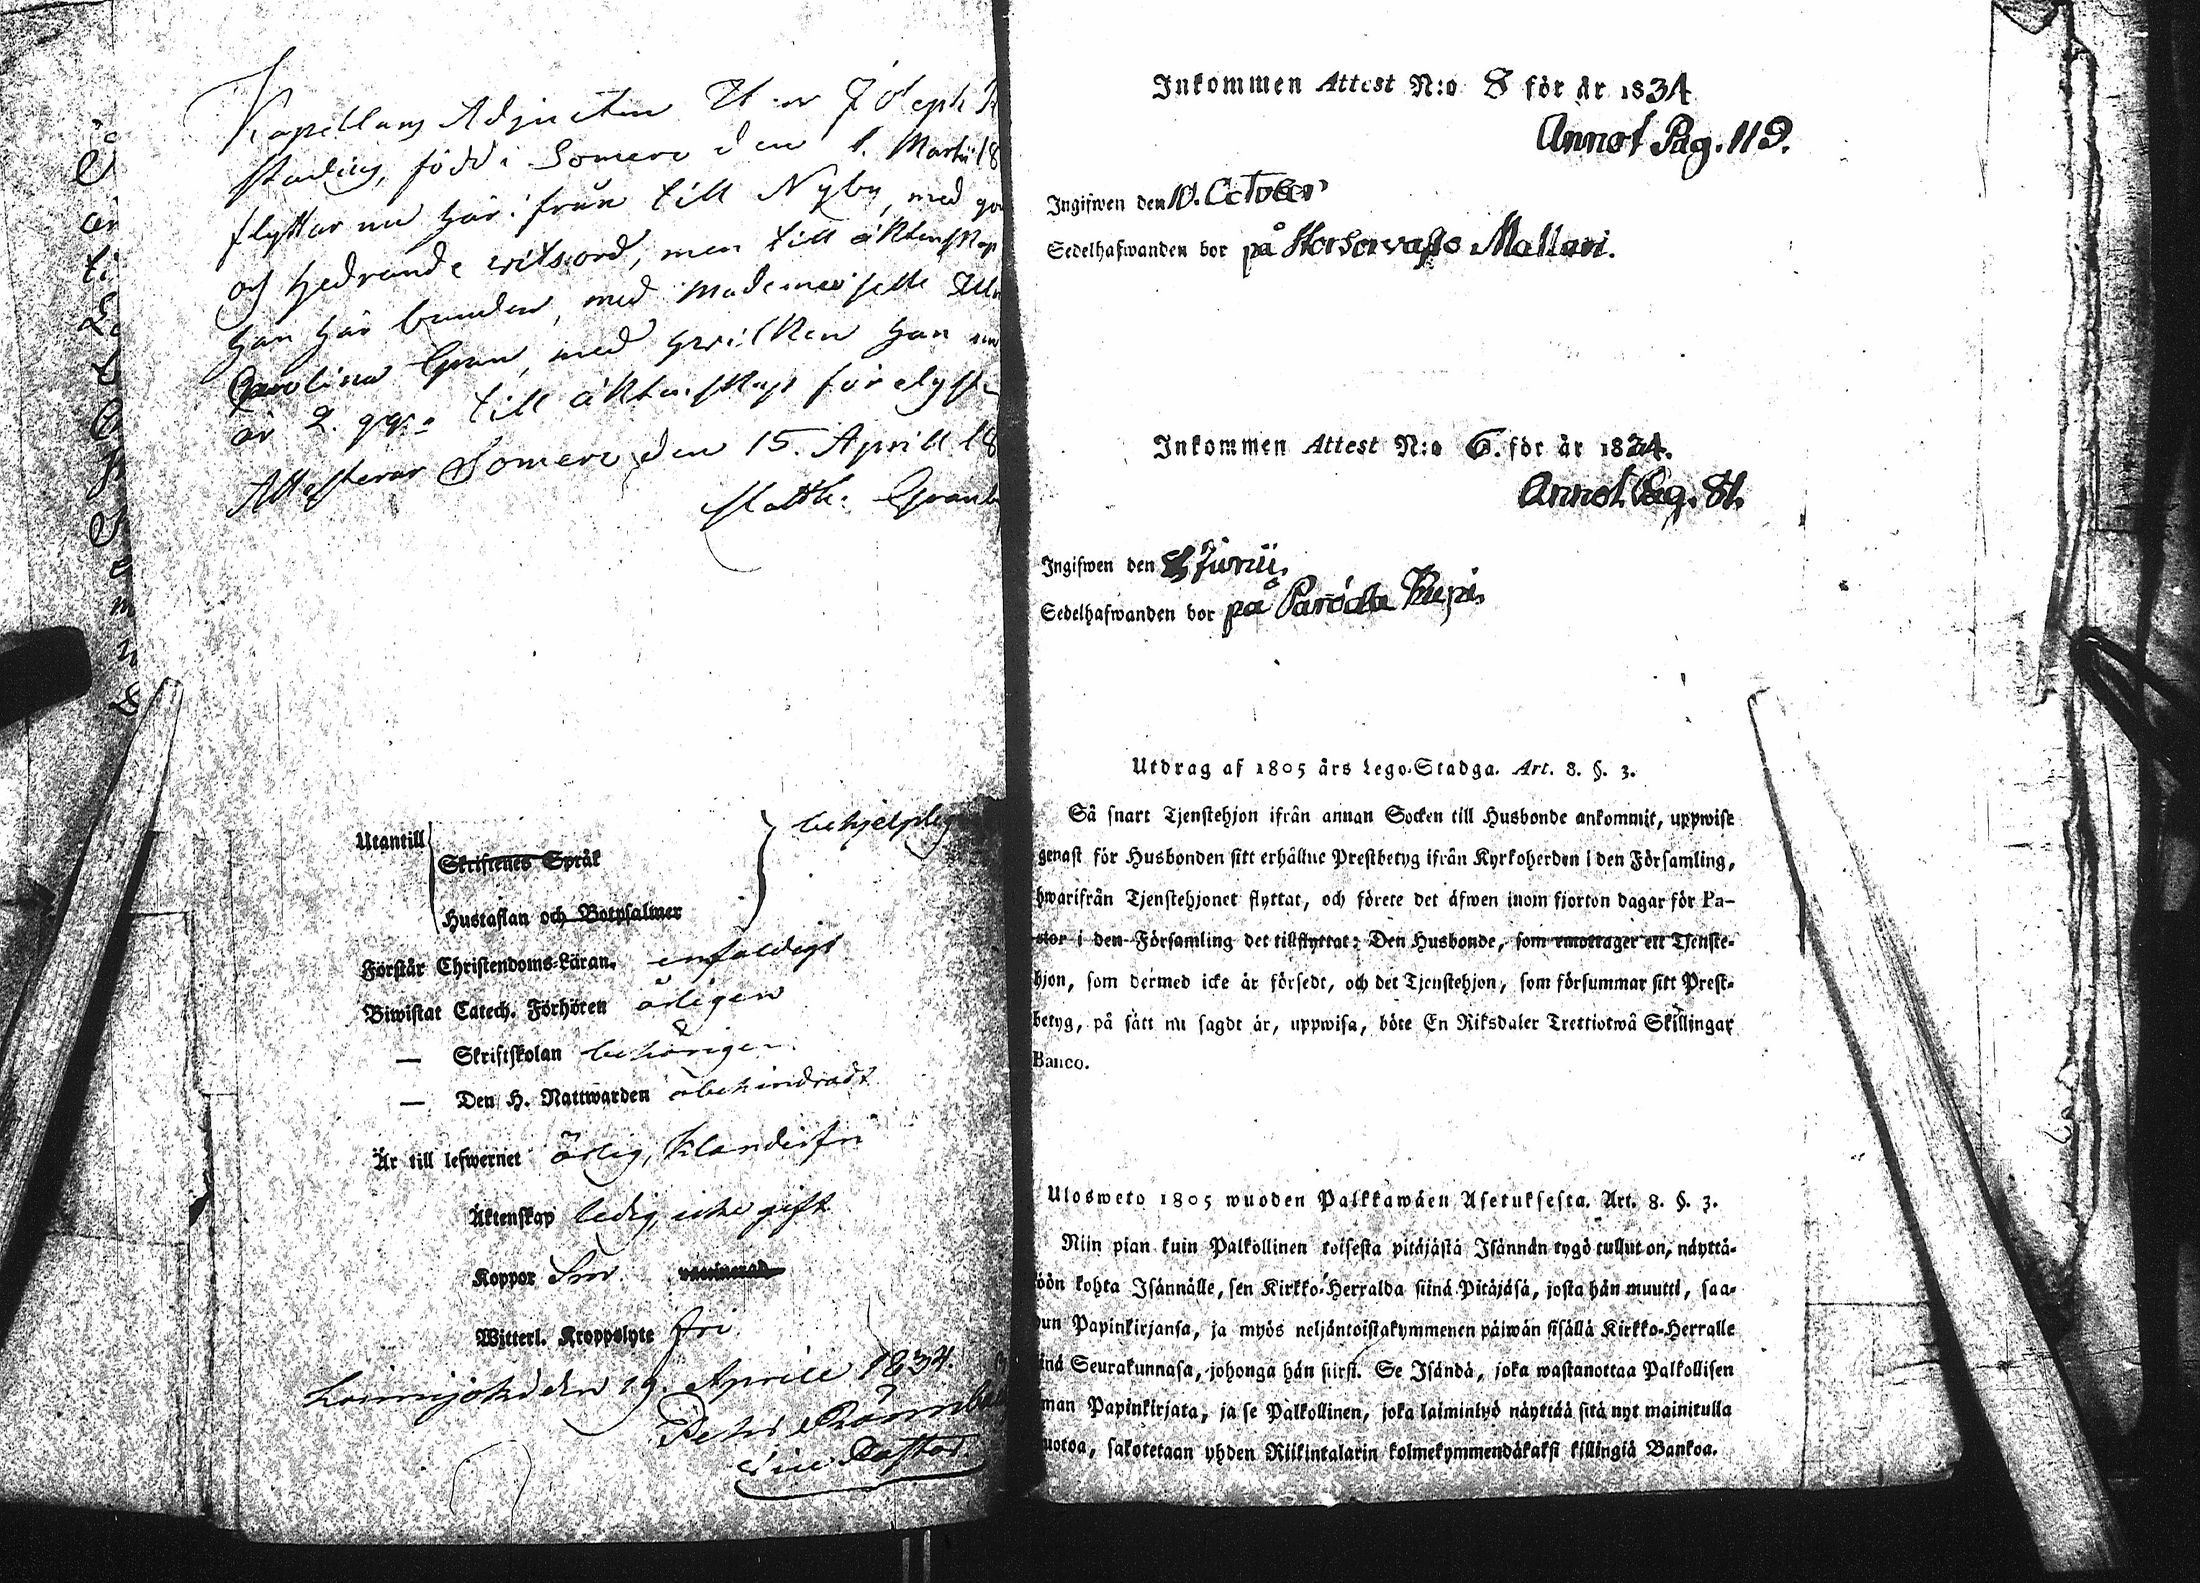 Kapellans Adjuncten H:r Joseph
Stadius, född i Somero den 1. Martii 18
flyttar nu här ifrån till Nyby, med god
och hedrande witsord, men till äktenskap
han här bunden, med Mademoiselle Ulr
Carolina Gran, med hwilken han nu
är 2. ggr till äktenskap för elyst
Attesterar Somero den 15. Aprill 18
Matth: Granb
Utantill
behjelplig
Skriftenes Språk
Hustaflan och Botpsalmer
Förstår Christendoms-Läran. enfaldigt
Biwistat Catech. Förhören årligen
— Skriftskolan behörigen
— Den H. Nattwarden obehindradt
Är till lefwernet ärlig, klanderfri
Äktenskap ledig, icke gift
Koppor vaccinerad
Witterl. Kroppslyte fri
Loimijoki den 19. Aprill 1834.
Petr
Vice Pastor
Inkommen Attest N:o 8 för år 1834
Annot Pag. 119.
Ingifwen den 10. October
Sedelhafwanden bor på Mallari.
Inkommen Attest N:o 6. för år 1834.
Annot Pag. 81.
Ingifwen den Junii,
Sedelhafwanden bor på
Utdrag af 1805 års Lego-Stadga. Art. 8. §. 3.
Så snart Tjenstehjon ifrån annan Socken till Husbonde ankommit, uppwise
genast för Husbonden sitt erhållne Prestbetyg ifrån Kyrkoherden i den Församling,
hwarifrån Tjenstehjonet flyttat, och förete det äfwen inom fjorton dagar för Pa-
stor i den Församling det tillflyttat: Den Husbonde, som emottager ett Tjenste-
hjon, som dermed icke är försedt, och det Tjenstehjon, som försummar sitt Prest-
betyg, på sätt nu sagdt är, uppwisa, böte En Riksdaler Trettiotwå Skillingar
Banco.
Ulosweto 1805 wuoden Palkkawäen Asetuksesta. Art. 8. §. 3.
Niin pian kuin Palkollinen toisesta pitäjästä Isännän tygö tullut on, näyttä-
öön kohta Isännälle, sen Kirkko-Herralda siinä Pitäjäsä, josta hän muutti, saa-
un Papinkirjansa, ja myös neljäntoistakymmenen päiwän sisällä Kirkko-Herralle
inä Seurakunnasa, johonga hän siirsi. Se Isändä, joka wastanottaa Palkollisen
man Papinkirjata, ja se Palkollinen, joka laiminlyö näyttää sitä nyt mainitulla
uotoa, sakotetaan yhden Riikintalarin kolmekymmendäkaksi killingiä Bankoa.